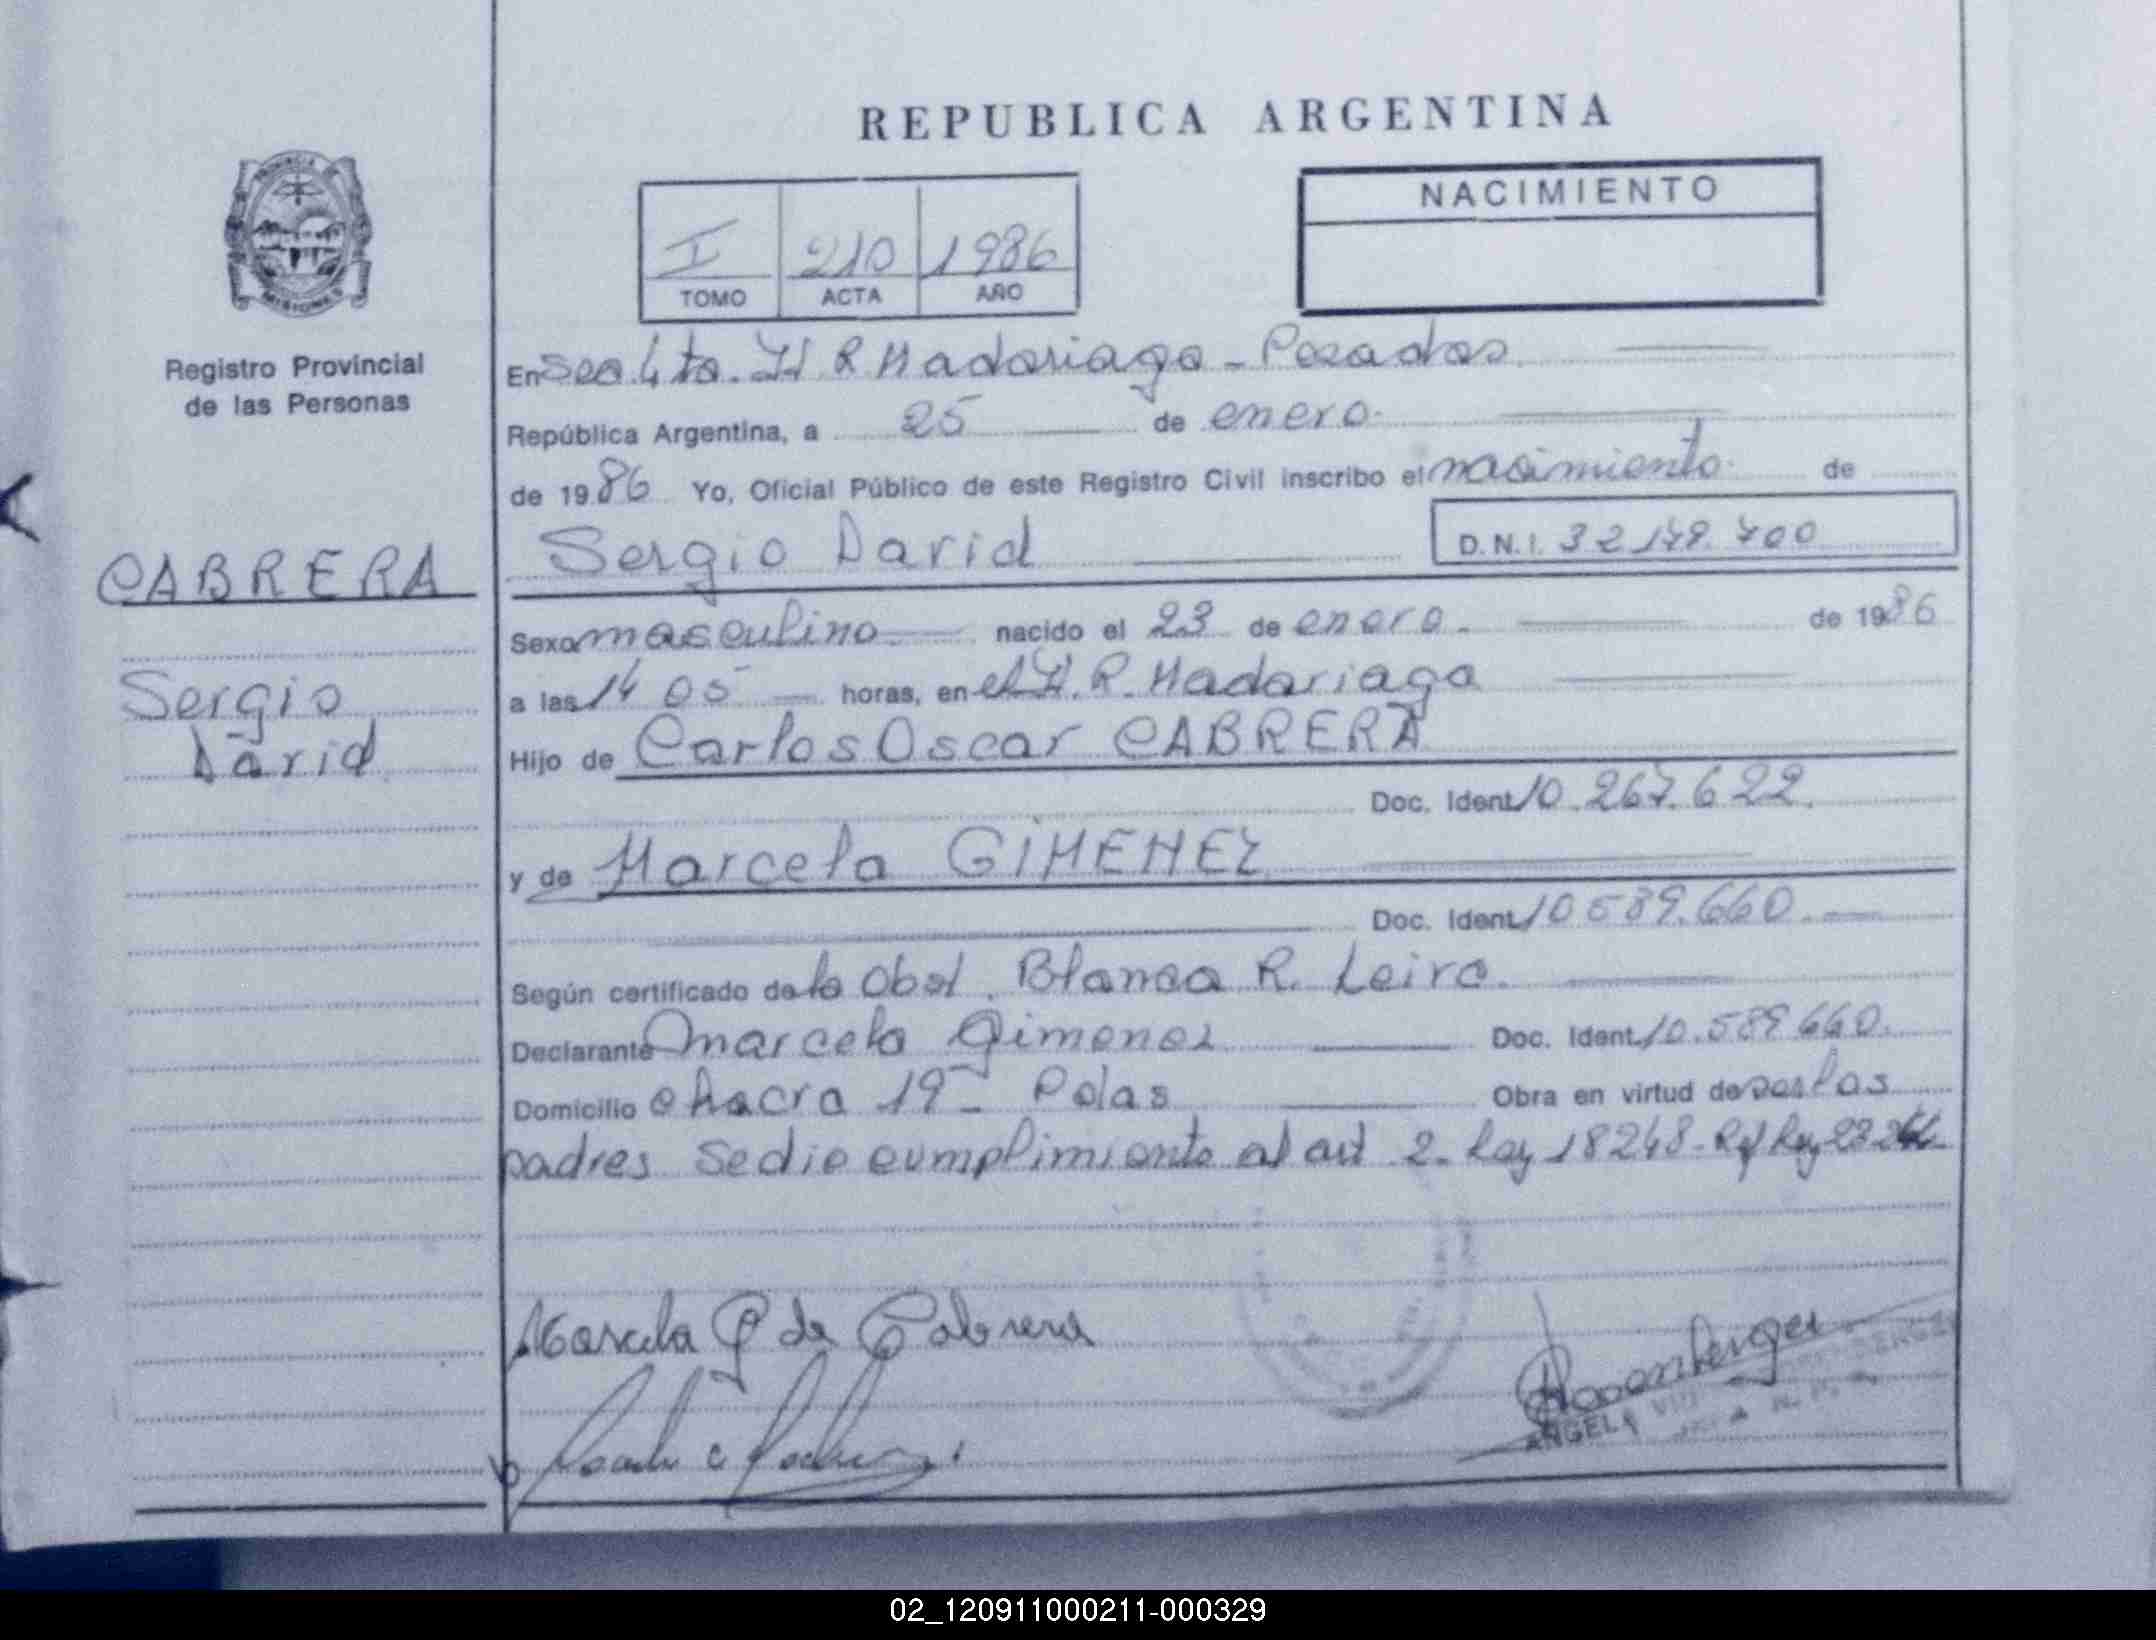 REPUBLICA ARGENTINA
PROVINCIA DE
MISIONES
Registro Provincial
de las Personas
I 210 1986
TOMO ACTA AÑO
NACIMIENTO
En Sec. 4ta. H R Madariaga - Posadas
República Argentina, a 25 de enero
de 1986 Yo, Oficial Público de este Registro Civil inscribo el nacimiento de
Sergio David
D.N.I. 32.179.700
CABRERA
Sergio
David
Sexo masculino nacido el 23 de enero de 1986
a las 14 05 horas, en el H. R. Madariaga
Hijo de Carlos Oscar CABRERA
Doc. Ident. 10.267.622
y de Marcela GIMENEZ
Doc. Ident. 10.589.660
Según certificado de la Obst. Blanca R. Leiro
Declarante Marcela Gimenez Doc. Ident. 10.589.660
Domicilio chacra 19 - Pdas Obra en virtud de ser los
padres Se dio cumplimiento al art 2. Ley 18248 - Ley
Marcela G de Cabrera
Rosenberger
ANGELA
02_120911000211-000329